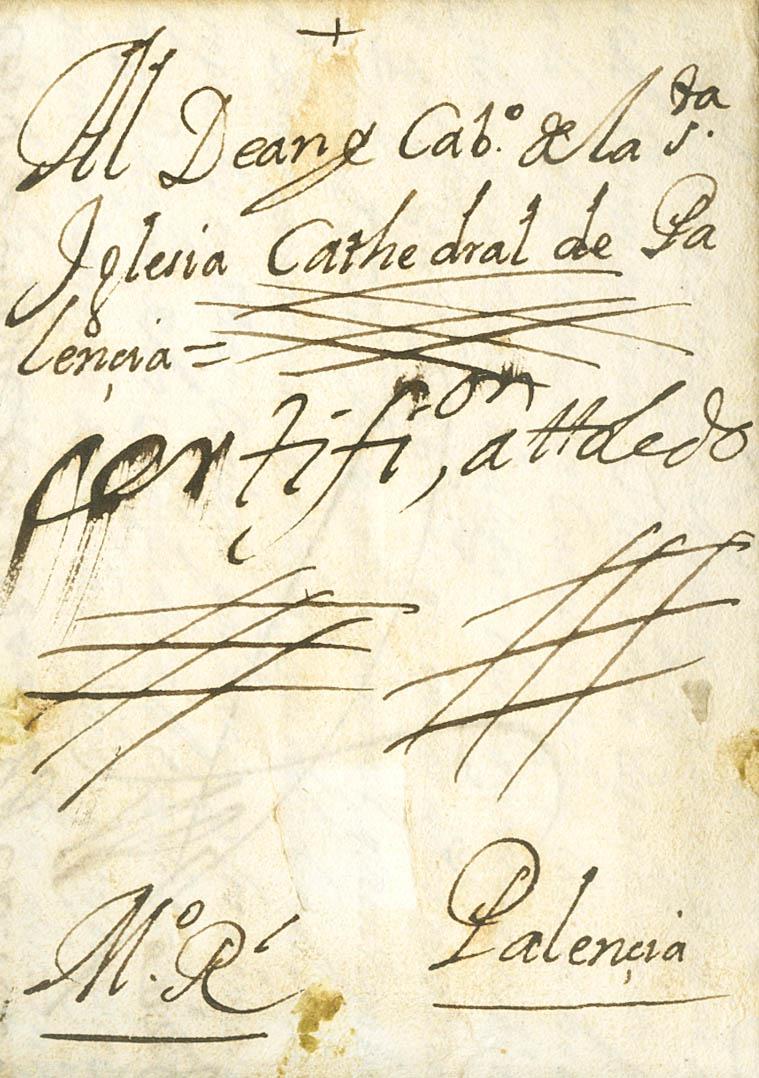 +
Al Dean y Cab.º de la s.ta
Iglesia Cathedral de Pa
lençia=
çertifi.on, a ttoledo
M.º R.l
Palençia